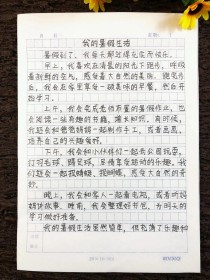 我的暑假生活
暑假到了，我每天都过得充实而快乐。
早上，我喜欢在清晨的阳光下跑步，呼吸
着新鲜的空气，感受着大自然的美好。跑完步
后，我会在家里享用一顿美味的早餐，然后开
始学习。
上午，我会完成老师布置的暑假作业，也
会阅读一些有趣的书籍，增长知识。有时候，
我还会和爸爸妈妈一起制作手工，或者画画，
培养自己的兴趣爱好。
下午，我会和小伙伴们一起去公园玩耍，
打羽毛球、踢足球，尽情享受运动的乐趣。我
们还会一起捉蜻蜓、捉蝴蝶，感受大自然的奇
妙。
晚上，我会和家人一起看电视，或者听妈
妈讲故事。睡前，我会整理好书包，为明天的
学习做好准备。
我的暑假生活虽然简单，但充满了乐趣和